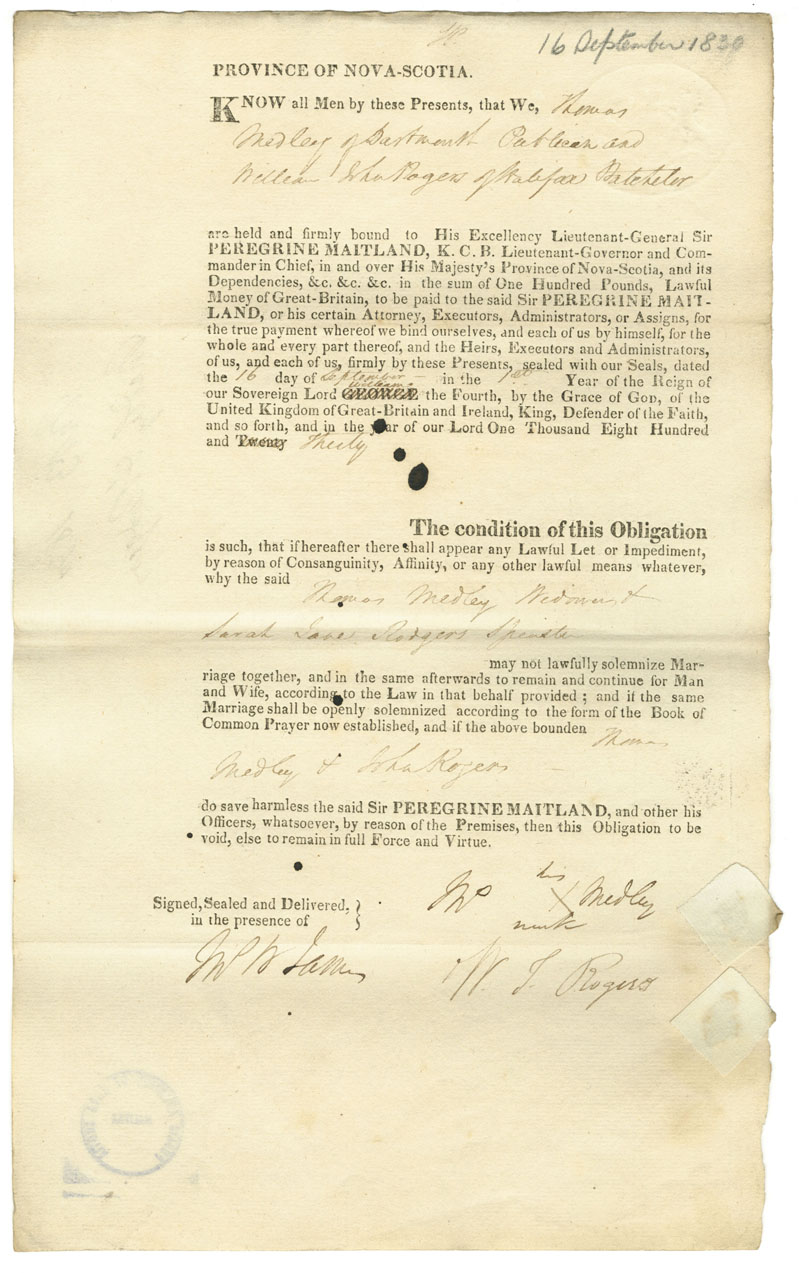 16 September 1830
PROVINCE OF NOVA-SCOTIA.
KNOW all Men by these Presents, that We, Thomas
Medley of Dartmouth Publican and
William John Rogers of Halifax Batchelor
are held and firmly bound to His Excellency Lieutenant-General Sir
PEREGRINE MAITLAND, K. C. B. Lieutenant-Governor and Com-
mander in Chief, in and over His Majesty's Province of Nova-Scotia, and its
Dependencies, &c. &c. &c. in the sum of One Hundred Pounds, Lawful
Money of Great-Britain, to be paid to the said Sir PEREGRINE MAIT-
LAND, or his certain Attorney, Executors, Administrators, or Assigns, for
the true payment whereof we bind ourselves, and each of us by himself, for the
whole and every part thereof, and the Heirs, Executors and Administrators,
of us, and each of us, firmly by these Presents, sealed with our Seals, dated
the 16 day of September in the 1st Year of the Reign of
our Sovereign Lord GEORGE William the Fourth, by the Grace of GOD, of the
United Kingdom of Great-Britain and Ireland, King, Defender of the Faith,
and so forth, and in the year of our Lord One Thousand Eight Hundred
and Twenty Thirty
The condition of this Obligation
is such, that if hereafter there shall appear any Lawful Let or Impediment,
by reason of Consanguinity, Affinity, or any other lawful means whatever,
why the said
Thomas Medley Widower &
Sarah Jane Rodgers Spinster
may not lawfully solemnize Mar-
riage together, and in the same afterwards to remain and continue for Man
and Wife, according to the Law in that behalf provided; and if the same
Marriage shall be openly solemnized according to the form of the Book of
Common Prayer now established, and if the above bounden Thomas
Medley & John Rogers
do save harmless the said Sir PEREGRINE MAITLAND, and other his
Officers, whatsoever, by reason of the Premises, then this Obligation to be
void, else to remain in full Force and Virtue.
Signed, Sealed and Delivered,
in the presence of
Ths his X Medley
mark
W James
W. J. Rogers